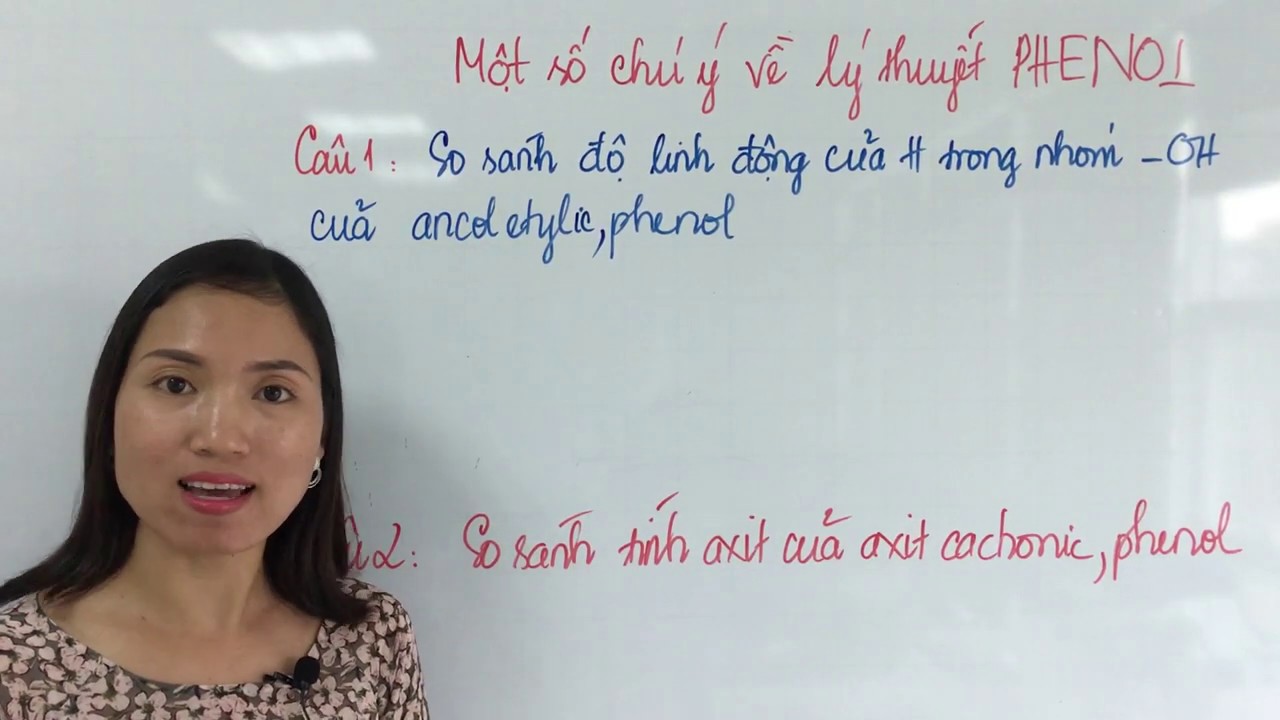 Một số chú ý về lý thuyết PHENOL
Câu 1: So sánh độ linh động của H trong nhóm -OH
của ancol etylic, phenol
2: So sánh tính axit của axit cacbonic, phenol